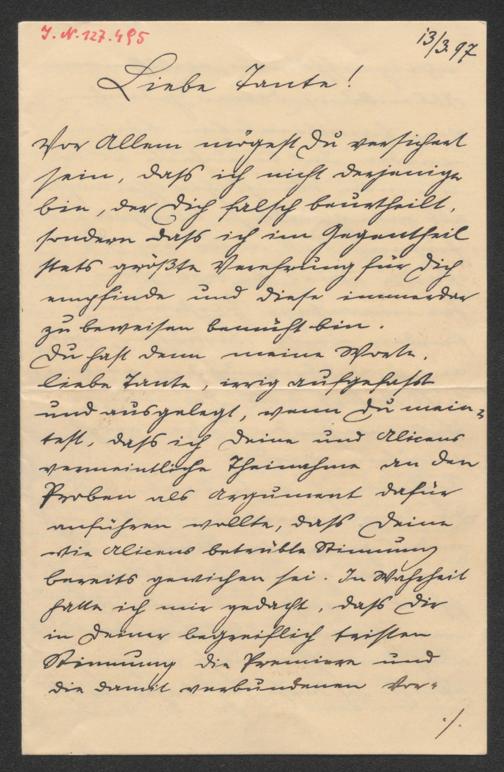 J. N. 127.495
13/3. 97
Liebe Tante!
Vor Allem mögest Du versichert
sein, daß ich nicht derjenige
bin, der Dich falsch beurtheilt,
sondern daß ich im Gegentheil
stets größte Verehrung für Dich
empfinde und diese immerdar
zu beweisen bemüht bin.
Du hast denn meine Worte,
liebe Tante, irrig aufgefasst
und ausgelegt, wenn Du mein-
test, daß ich Deine und Alicens
vermeintliche Theinahme an den
Proben als Argument dafür
anführen wollte, daß Deine
wie Alicens betrübte Stimmung
bereits gewichen sei. In Wahrheit
hatte ich mir gedacht, daß Dir
in Deiner begreiflich tristen
Stimmung die Premiere und
die damit verbundenen Vor-
./.